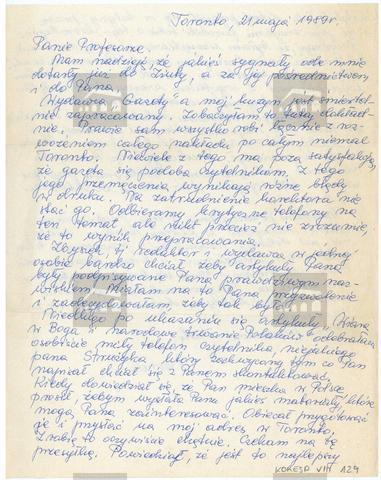 Toronto, 21 maja 1989r.
Panie Profesorze.
Mam nadzieję, że jakieś sygnały ode mnie
dotarły już do Zuzy, a za jej pośrednictwem
i do Pana.
Wydawca "Gazety" a mój kuzyn jest śmiertel-
nie zapracowany. Zobaczyłam to tutaj dokład-
nie. Prawie sam wszystko robi łącznie z roz-
wożeniem całego nakładu po całym niemal
Toronto. Niewiele z tego ma poza satysfakcją,
że gazeta się podoba czytelnikom. Z tego
jego przemęczenia wynikają różne błędy
w druku. Na zatrudnienie korektora nie
stać go. Odbieramy krytyczne telefony na
ten temat, ale nikt przecież nie zrozumie,
że to wynik przepracowania.
Zbyszek, tj. redaktor i wydawca w jednej
osobie bardzo chciał, żeby artykuły Pana
były podpisywane Pana prawdziwym naz-
wiskiem. Miałam na to Pana przyzwolenie
i zadecydowałam żeby tak było.
Niedługo po ukazaniu się artykułu "Wiara
w Boga i narodowe trwanie Polaków" odebrałam
osobiście miły telefon czytelnika, niejakiego
pana Struzika, który zachwycony tym co Pan
napisał chciał się z Panem skontaktować.
Kiedy dowiedział się, że Pan mieszka w Polsce
prosił, żebym wysłała Pana jakieś materiały, które
mogą Pana zainteresować. Obiecał przygotować
je i przysłać na mój adres w Toronto.
Zrobię to oczywiście chętnie. Czekam na tę
przesyłkę. Powiedział, że jest to najlepszy
KORESP VIII 129